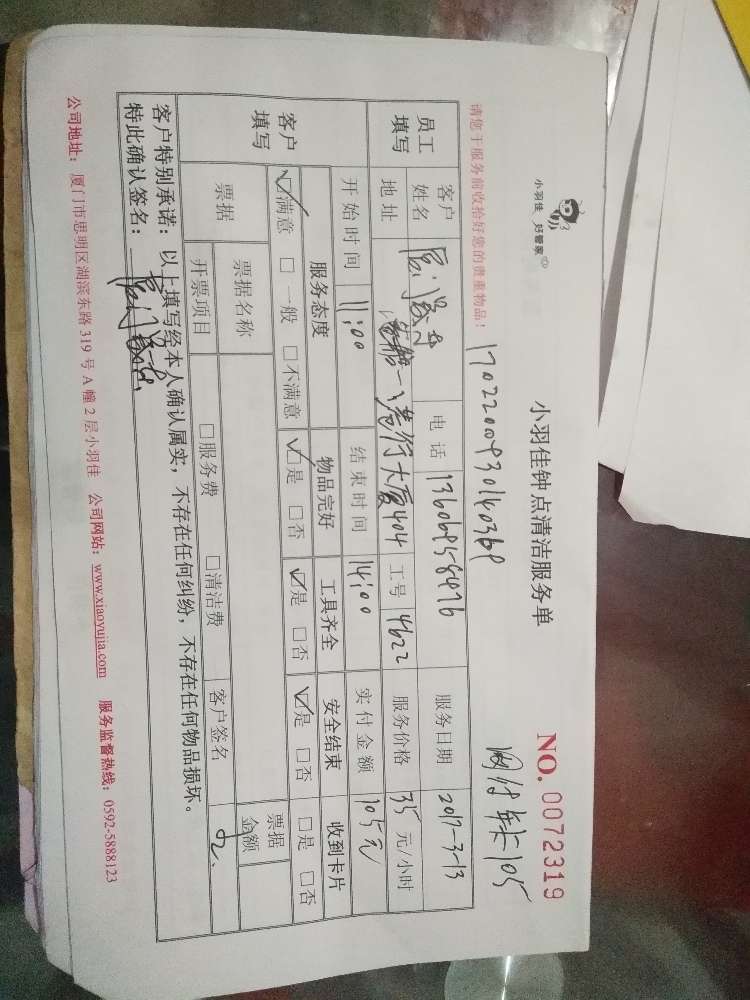 小羽佳 好管家
小羽佳钟点清洁服务单
NO. 0072319
请您于服务前收拾好您的贵重物品！
年卡105
员工填写
客户姓名
电话 13606958476
服务日期 2017-3-13
地址
大厦404
工号 4622
服务价格 35 元/小时
开始时间 11:00
结束时间 14:00
实付金额 105元
客户填写
服务态度 物品完好 工具齐全 安全结束 收到卡片
☑满意 □一般 □不满意 ☑是 □否 ☑是 □否 ☑是 □否 □是 □否
票据
票据名称
票据金额
开票项目 □服务费 □清洁费 客户签名
客户特别承诺：以上填写经本人确认属实，不存在任何纠纷，不存在任何物品损坏。
特此确认签名：
公司地址：厦门市思明区湖滨东路 319 号 A 幢 2 层小羽佳 公司网站：www.xiaoyujia.com 服务监督热线：0592-5888123